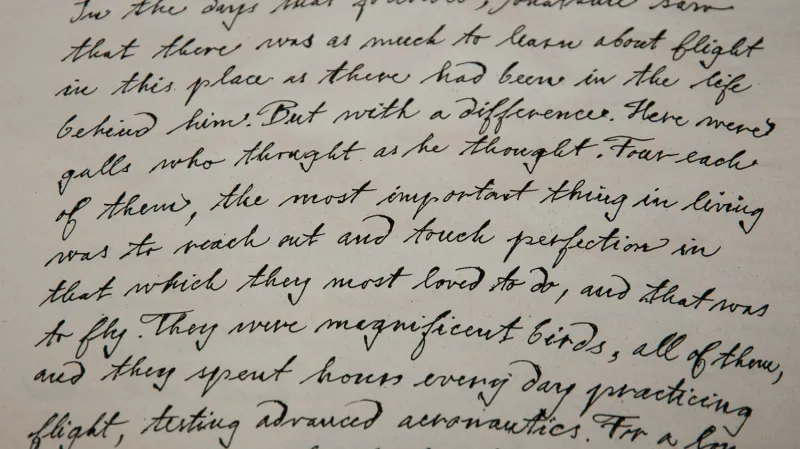 In the days that followed, Jonathan saw
that there was as much to learn about flight
in this place as there had been in the life
behind him. But with a difference. Here were
gulls who thought as he thought. Four each
of them, the most important thing in living
was to reach out and touch perfection in
that which they most loved to do, and that was
to fly. They were magnificent birds, all of them,
and they spent hours every day practicing
flight, testing advanced aeronautics. For a